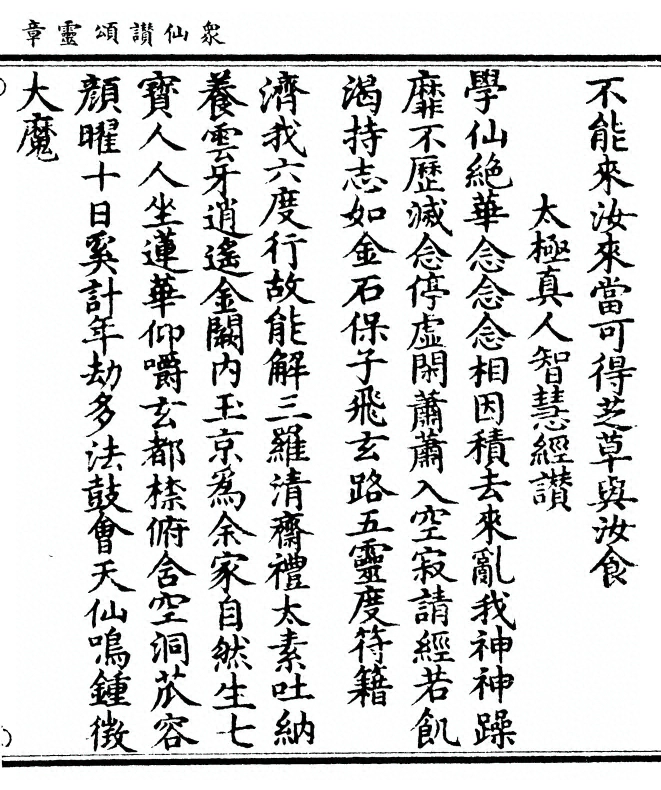 衆仙讃頌靈章
不能來汝來當可得芝草與汝食
太極真人智慧經讃
學仙絶華念念念相因積去來亂我神神躁
靡不歷滅念停虛閑蕭蕭入空寂請經若飢
渴持志如金石保子飛玄路五靈度符籍
濟我六度行故能解三羅清齋禮太素吐納
養雲牙逍遙金闕内玉京爲余家自然生七
寳人人坐蓮華仰嚼玄都㮏俯含空洞苽容
顔曜十日奚計年劫多法鼓會天仙鳴鍾徴
大魔